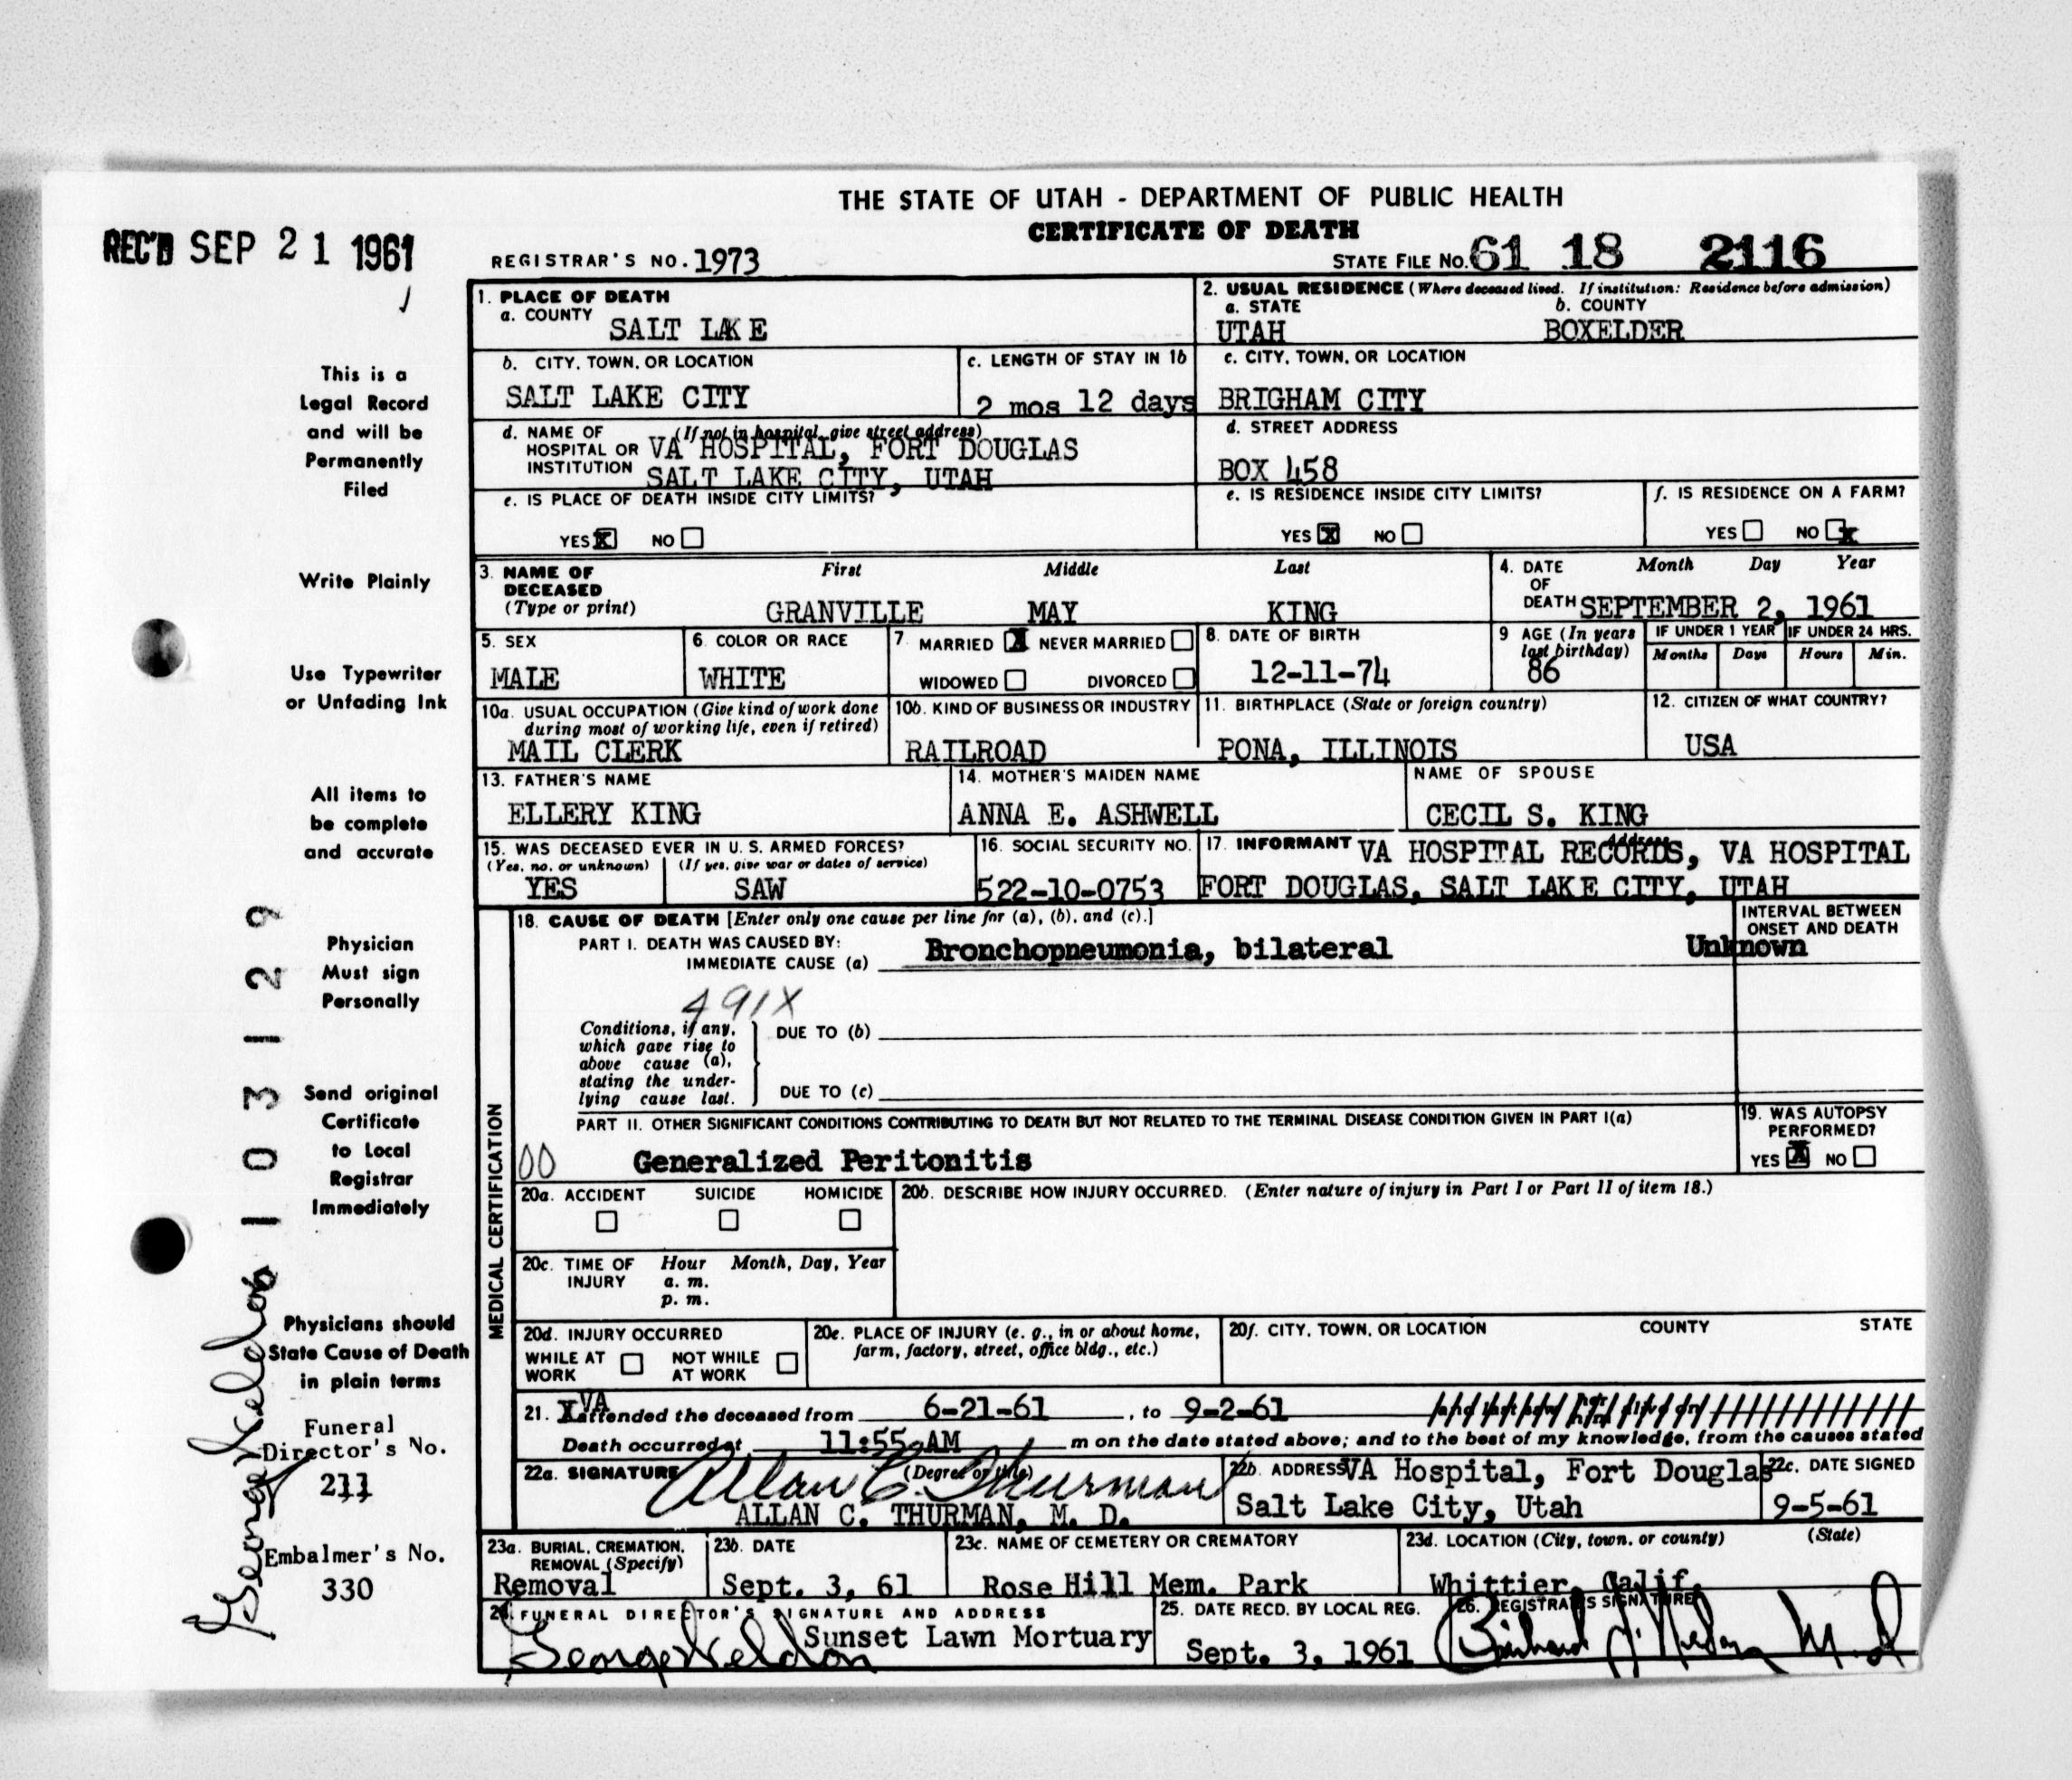 THE STATE OF UTAH - DEPARTMENT OF PUBLIC HEALTH
CERTIFICATE OF DEATH
REC'D SEP 21 1961
REGISTRAR'S NO. 1973
STATE FILE NO. 61 18 2116
1. PLACE OF DEATH
a. COUNTY SALT LAKE
2. USUAL RESIDENCE (Where deceased lived. If institution: Residence before admission)
a. STATE b. COUNTY
UTAH BOXELDER
b. CITY, TOWN, OR LOCATION
SALT LAKE CITY
c. LENGTH OF STAY IN 1b
2 mos 12 days
c. CITY, TOWN, OR LOCATION
BRIGHAM CITY
d. NAME OF HOSPITAL OR INSTITUTION (If not in hospital, give street address)
VA HOSPITAL, FORT DOUGLAS
SALT LAKE CITY, UTAH
d. STREET ADDRESS
BOX 458
e. IS PLACE OF DEATH INSIDE CITY LIMITS?
YES X NO
e. IS RESIDENCE INSIDE CITY LIMITS?
YES X NO
f. IS RESIDENCE ON A FARM?
YES NO X
3. NAME OF DECEASED (Type or print)
First Middle Last
GRANVILLE MAY KING
4. DATE OF DEATH Month Day Year
SEPTEMBER 2, 1961
5. SEX
MALE
6. COLOR OR RACE
WHITE
7. MARRIED X NEVER MARRIED
WIDOWED DIVORCED
8. DATE OF BIRTH
12-11-74
9 AGE (In years last birthday)
86
IF UNDER 1 YEAR IF UNDER 24 HRS.
Months Days Hours Min.
10a. USUAL OCCUPATION (Give kind of work done during most of working life, even if retired)
MAIL CLERK
10b. KIND OF BUSINESS OR INDUSTRY
RAILROAD
11. BIRTHPLACE (State or foreign country)
PONA, ILLINOIS
12. CITIZEN OF WHAT COUNTRY?
USA
13. FATHER'S NAME
ELLERY KING
14. MOTHER'S MAIDEN NAME
ANNA E. ASHWELL
NAME OF SPOUSE
CECIL S. KING
15. WAS DECEASED EVER IN U. S. ARMED FORCES?
(Yes, no, or unknown) (If yes, give war or dates of service)
YES SAW
16. SOCIAL SECURITY NO.
522-10-0753
17. INFORMANT Address
VA HOSPITAL RECORDS, VA HOSPITAL
FORT DOUGLAS, SALT LAKE CITY, UTAH
18. CAUSE OF DEATH [Enter only one cause per line for (a), (b), and (c).]
INTERVAL BETWEEN ONSET AND DEATH
PART I. DEATH WAS CAUSED BY:
IMMEDIATE CAUSE (a) Bronchopneumonia, bilateral Unknown
491X
Conditions, if any,
which gave rise to
above cause (a),
stating the under-
lying cause last.
DUE TO (b)
DUE TO (c)
PART II. OTHER SIGNIFICANT CONDITIONS CONTRIBUTING TO DEATH BUT NOT RELATED TO THE TERMINAL DISEASE CONDITION GIVEN IN PART I(a)
00 Generalized Peritonitis
19. WAS AUTOPSY PERFORMED?
YES X NO
20a. ACCIDENT SUICIDE HOMICIDE
20b. DESCRIBE HOW INJURY OCCURRED. (Enter nature of injury in Part I or Part II of item 18.)
20c. TIME OF INJURY Hour Month, Day, Year
a. m.
p. m.
20d. INJURY OCCURRED
WHILE AT WORK NOT WHILE AT WORK
20e. PLACE OF INJURY (e. g., in or about home, farm, factory, street, office bldg., etc.)
20f. CITY, TOWN, OR LOCATION COUNTY STATE
21. X VA attended the deceased from 6-21-61, to 9-2-61 and last saw her him alive on
Death occurred at 11:55 AM m on the date stated above; and to the best of my knowledge, from the causes stated
22a. SIGNATURE (Degree or title)
Allan C. Thurman
ALLAN C. THURMAN, M. D.
22b. ADDRESS VA Hospital, Fort Douglas
Salt Lake City, Utah
22c. DATE SIGNED
9-5-61
23a. BURIAL, CREMATION, REMOVAL (Specify)
Removal
23b. DATE
Sept. 3, 61
23c. NAME OF CEMETERY OR CREMATORY
Rose Hill Mem. Park
23d. LOCATION (City, town, or county) (State)
Whittier, Calif.
24. FUNERAL DIRECTOR'S SIGNATURE AND ADDRESS
Sunset Lawn Mortuary
25. DATE RECD. BY LOCAL REG.
Sept. 3, 1961
26. REGISTRAR'S SIGNATURE
MEDICAL CERTIFICATION
This is a
Legal Record
and will be
Permanently
Filed
Write Plainly
Use Typewriter
or Unfading Ink
All items to
be complete
and accurate
Physician
Must sign
Personally
Send original
Certificate
to Local
Registrar
Immediately
Physicians should
State Cause of Death
in plain terms
Funeral
Director's No.
211
Embalmer's No.
330
1 103129